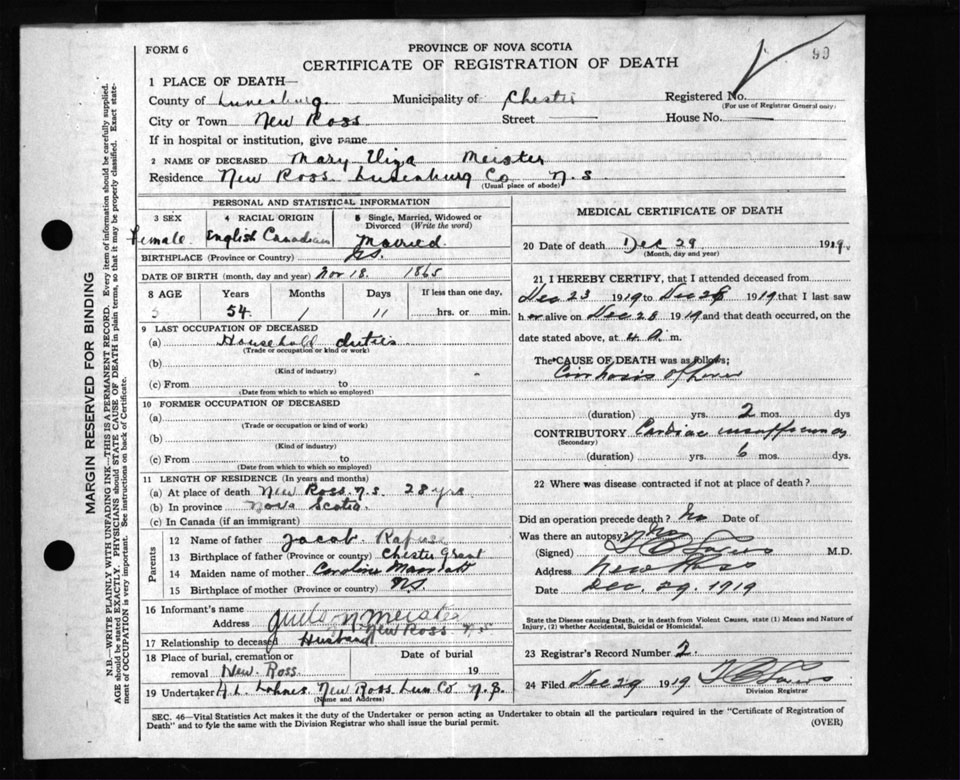 FORM 6
PROVINCE OF NOVA SCOTIA
99
CERTIFICATE OF REGISTRATION OF DEATH
1 PLACE OF DEATH—
County of Lunenburg Municipality of Chester Registered No.
(For use of Registrar General only)
City or Town New Ross Street House No.
If in hospital or institution, give name
2 NAME OF DECEASED Mary Eliza Meister
Residence New Ross Lunenburg Co N.S.
(Usual place of abode)
PERSONAL AND STATISTICAL INFORMATION
3 SEX 4 RACIAL ORIGIN 5 Single, Married, Widowed or Divorced (Write the word)
Female English Canadian Married
BIRTHPLACE (Province or Country)
DATE OF BIRTH (month, day and year) Nov 18 1865
8 AGE Years Months Days If less than one day,
54 1 11 hrs. or min.
9 LAST OCCUPATION OF DECEASED
(a) Household duties
(Trade or occupation or kind of work)
(b)
(Kind of industry)
(c) From to
(Date from which to which so employed)
10 FORMER OCCUPATION OF DECEASED
(a)
(Trade or occupation or kind of work)
(b)
(Kind of industry)
(c) From to
(Date from which to which so employed)
11 LENGTH OF RESIDENCE (In years and months)
(a) At place of death New Ross N.S. 28 yrs
(b) In province Nova Scotia
(c) In Canada (if an immigrant)
Parents
12 Name of father Jacob Rafuse
13 Birthplace of father (Province or country) Chester Grant
14 Maiden name of mother Caroline
15 Birthplace of mother (Province or country) N.S.
16 Informant's name Meister
Address New Ross N.S.
17 Relationship to deceased Husband
18 Place of burial, cremation or Date of burial
removal New Ross 19
19 Undertaker A.L. Lohnes New Ross Lun Co N.S.
(Name and Address)
MEDICAL CERTIFICATE OF DEATH
20 Date of death Dec 29 1919
(Month, day and year)
21 I HEREBY CERTIFY, that I attended deceased from
Dec 23 1919 to Dec 28 1919 that I last saw
her alive on Dec 28 1919 and that death occurred, on
date stated above, at 4 A. m.
The CAUSE OF DEATH was as follows;
Cirrhosis of Liver
(duration) yrs. 2 mos. dys
CONTRIBUTORY Cardiac insufficiency
(Secondary)
(duration) yrs. 6 mos. dys.
22 Where was disease contracted if not at place of death?
Did an operation precede death? No Date of
Was there an autopsy? No
(Signed) M.D.
Address New Ross
Date Dec. 29. 1919
State the Disease causing Death, or in death from Violent Causes, state (1) Means and Nature of
Injury, (2) whether Accidental, Suicidal or Homicidal.
23 Registrar's Record Number 2.
24 Filed Dec 29 1919
Division Registrar
SEC. 46—Vital Statistics Act makes it the duty of the Undertaker or person acting as Undertaker to obtain all the particulars required in the "Certificate of Registration of
Death" and to fyle the same with the Division Registrar who shall issue the burial permit. (OVER)
MARGIN RESERVED FOR BINDING
N.B.—WRITE PLAINLY WITH UNFADING INK—THIS IS A PERMANENT RECORD. Every item of information should be carefully supplied.
AGE should be stated EXACTLY. PHYSICIANS should STATE CAUSE OF DEATH in plain terms, so that it may be properly classified. Exact state-
ment of OCCUPATION is very important. See instructions on back of Certificate.